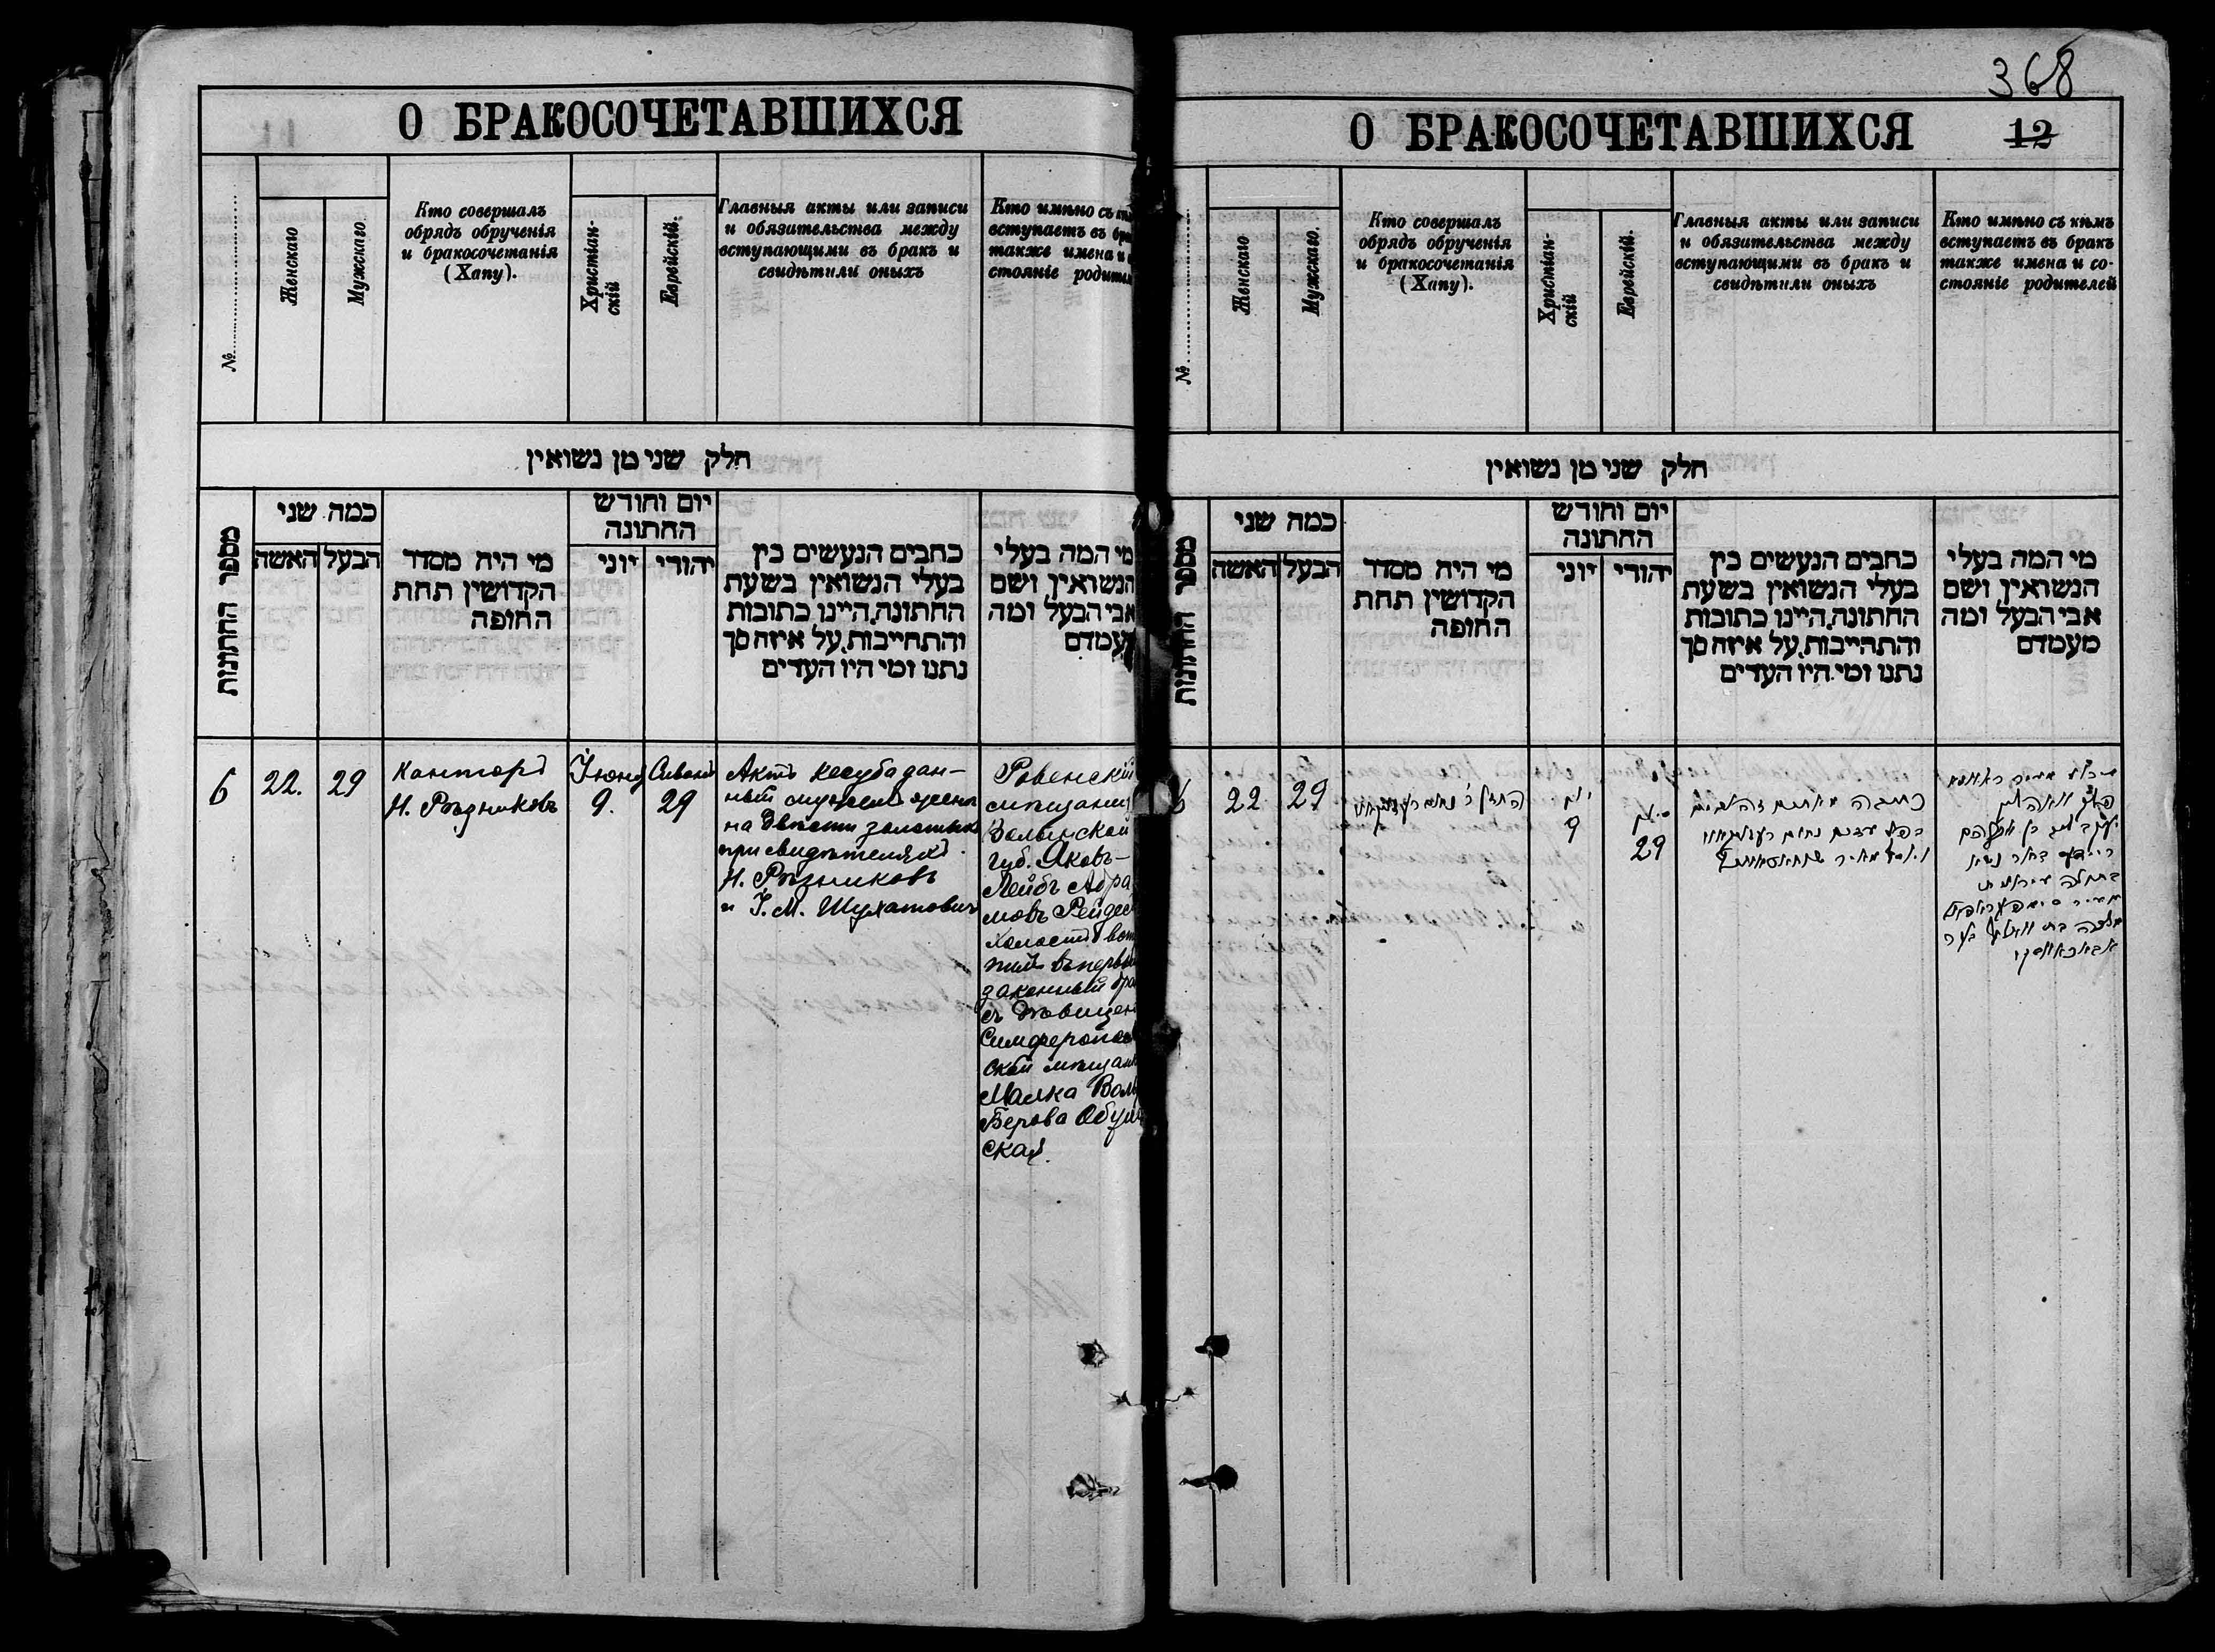 О БРАКОСОЧЕТАВШИХСЯ
№
Женскаго
Мужскаго
Кто совершалъ
обрядъ обрученія
и бракосочетанія
(Хапу).
Христіан-
скій
Еврейскій.
Главныя акты или записи
и обязательства между
вступающими въ бракъ и
свидѣтили оныхъ
Кто имѣно съ
вступаетъ въ
также имена и
стояніе
חלק שני מן נשואין
מספר החתונות
כמה שני
האשה
הבעל
מי היה מסדר
הקדושין תחת
החופה
יום וחודש
החתונה
יוני
יהודי
כתבים הנעשים בין
בעלי הנשואין בשעת
החתונה,היינו כתובות
והתחייבות,על איזה סך
נתנו ומי היו העדים
מי המה בעלי
הנשואין ושם
אבי הבעל ומה
מעמדם
6
22.
29
Канторъ
Н. Рѣзниковъ
Іюня
9.
Сивана
29
Актъ кесуба дан-
ный мужемъ женѣ
на двѣсти золотыхъ
при свидѣтеляхъ
Н. Рѣзниковъ
и І. М. Шухатовичъ
Ровенскій
мѣщанинъ
Волынской
губ. Яковъ-
Лейбъ Абра
мовъ
холостъ
пилъ въ первый
законный
съ дѣвицей
Симферополь
ской
Малка
Берова
ская.
368
О БРАКОСОЧЕТАВШИХСЯ
12
№
Женскаго
Мужскаго.
Кто совершалъ
обрядъ обрученія
и бракосочетанія
(Хапу).
Христіан-
скій
Еврейскій.
Главныя акты или записи
и обязательства между
вступающими въ бракъ и
свидѣтили оныхъ
Кто имѣно съ кѣмъ
вступаетъ въ бракъ
также имена и со-
стояніе родителей
חלק שני מן נשואין
מספר החתונות
כמה שני
האשה
הבעל
מי היה מסדר
הקדושין תחת
החופה
יום וחודש
החתונה
יוני
יהודי
כתבים הנעשים בין
בעלי הנשואין בשעת
החתונה,היינו כתובות
והתחייבות,על איזה סך
נתנו ומי היו העדים
מי המה בעלי
הנשואין ושם
אבי הבעל ומה
מעמדם
6
22
29
9
סיון
29